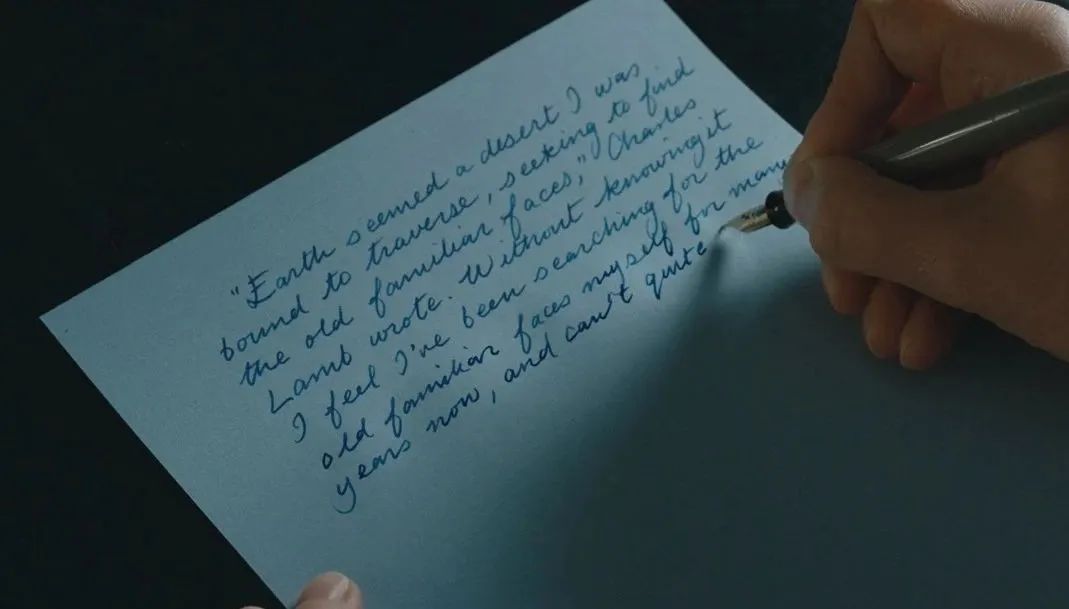 "Earth seemed a desert I was
bound to traverse, seeking to find
the old familiar faces," Charles
Lamb wrote. Without knowing it
I feel I've been searching for the
old familiar faces myself for many
years now, and can't quite